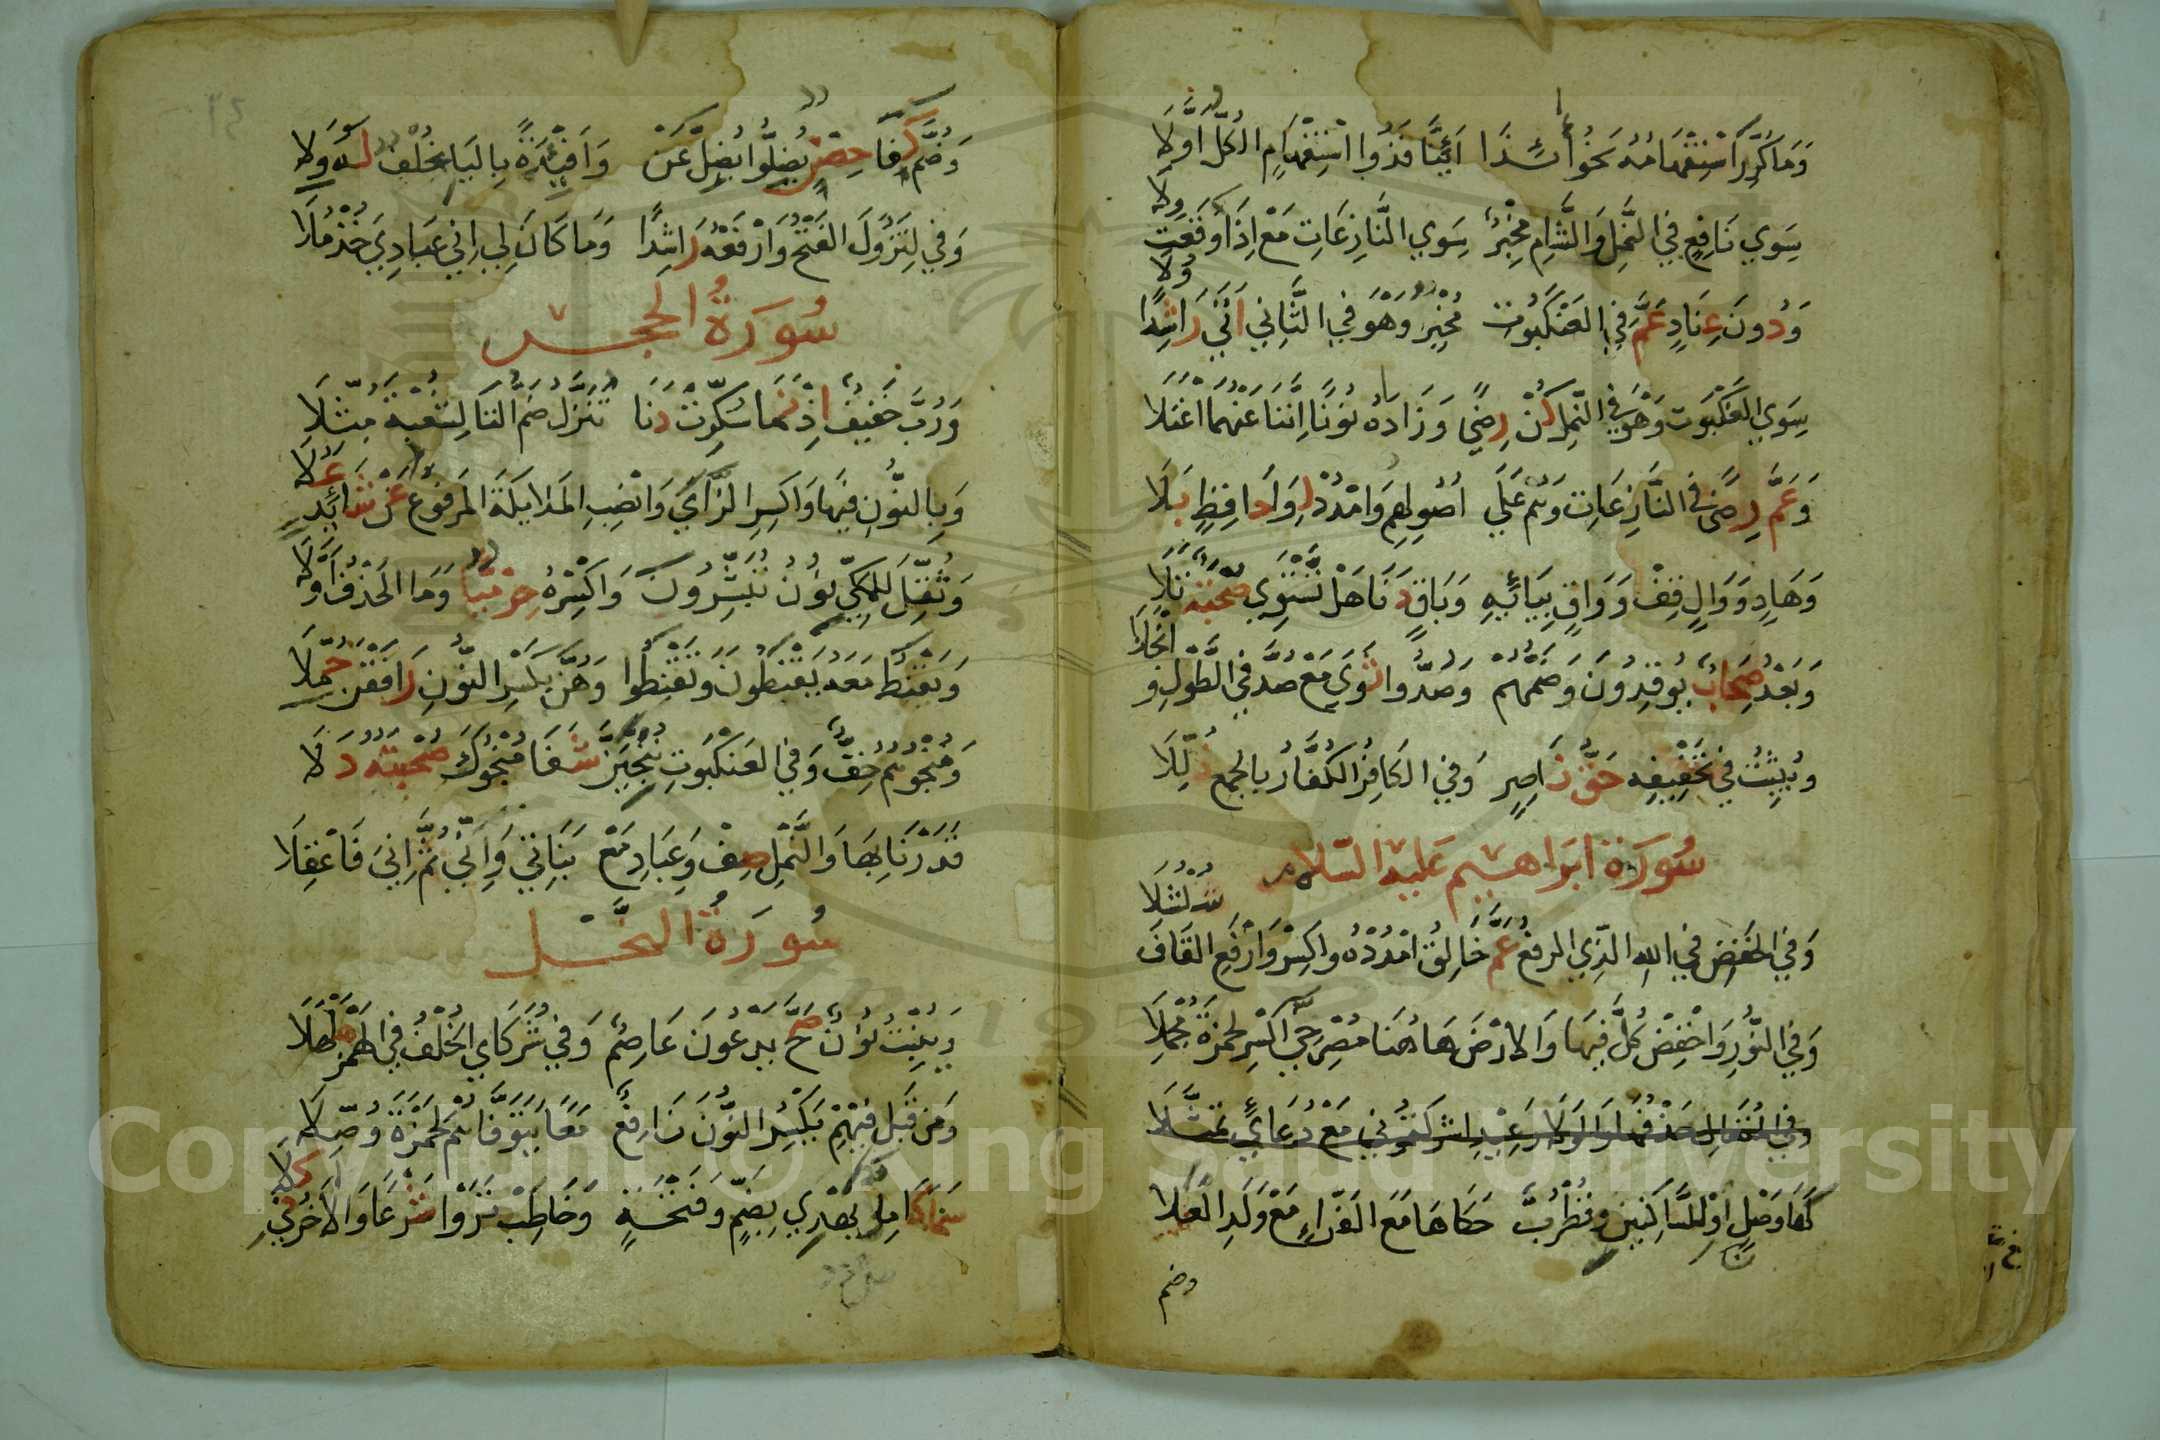 وَمَا كُرِّرَ اسْتِفْهَامُهُ نَحْوُ أَئِذَا أَئِنَّا فَذُوا اسْتِفْهَامٍ الْكُلُّ أَوَّلَا
سِوَي نَافِعٍ فِي النَّمْلِ وَالشَّامِ مُخْبِرٌ سِوَي النَّازِعَاتِ مَعْ إِذَا وَقَعَتْ وِلَا
وَدُونَ عِنَادٍ عَمَّ فِي الْعَنْكَبُوتِ مُخْبِرٌ وَهْوَ فِي الثَّانِي أَتَي رَاشِدًا وَلَا
سِوَي الْعَنْكَبُوتِ وَهْوَ فِي النَّمْلِ كُنْ رِضًي وَزَادَاهُ نُونًا إِنَّنَا عَنْهُمَا اعْتَلَا
وَعَمَّ رِضًي فِي النَّازِعَاتِ وَهُمْ عَلَي أُصُولِهِمْ وَامْدُدْ لِوَا حَافِظٍ بَلَا
وَهَادٍ وَوَالٍ قِفْ وَوَاقٍ بِيَائِهِ وَبَاقٍ دَنَا هَلْ تَسْتَوِي صُحْبَةٌ تَلَا
وَبَعْدُ صِحَابٌ يُوقِدُونَ وَضَمُّهُمْ وَصُدُّوا ثَوَي مَعْ صُدَّ فِي الطَّوْلِ وَانْجَلَا
وَيُثْبِتُ فِي تَخْفِيفِهِ حَقُّ نَاصِرٍ وَفِي الْكَافِرُ الْكُفَّارُ بِالْجَمْعِ ذُلِّلَا
سُورَةُ إِبْرَاهِيمَ عَلَيْهِ السَّلَام
وَفِي الْخَفْضِ فِي اللهِ الَّذِي الرَّفْعُ عَمَّ خَالِقُ امْدُدْهُ وَاكْسِرْ وَارْفَعِ الْقَافَ شُلْشُلَا
وَفِي النُّورِ وَاخْفِضْ كُلَّ فِيهَا وَالْأَرْضَ هَاهُنَا مُصْرِخِيَّ اكْسِرْ لِحَمْزَةَ مُجْمِلَا
كَهَا وَصْلٍ أَوْ لِلسَّاكِنَيْنِ وَقُطْرُبٌ حَكَاهَا مَعَ الْفَرَّاءِ مَعْ وَلَدِ الْعَلَا
وضم
وَضُمَّ كِفَا حِصْنٍ يَضِلُّوا يَضِلَّ عَنْ وَأَفْئِيدَةً بِالْيَا بِخُلْفٍ لَهُ وَلَا
وَفِي لِتَزُولَ الْفَتْحُ وَارْفَعْهُ رَاشِدًا وَمَا كَانَ لِي إِنِّي عِبَادِيَ خُذْ مُلَا
سُورَةُ الْحِجْر
وَرُبَّ خَفِيفٌ إِذْ نَمَا سُكِّرَتْ دَنَا تَنَزَّلُ ضَمُّ التَّا لِشُعْبَةَ مُثِّلَا
وَبِالنُّونِ فِيهَا وَاكْسِرِ الزَّايَ وَانْصِبِ الْمَلَائِكَةَ الْمَرْفُوعَ عَنْ شَائِدٍ عُلَا
وَثُقِّلَ لِلْمَكِّيِّ نُونُ تُبَشِّرُونَ وَاكْسِرْهُ حِرْمِيًّا وَمَا الْحَذْفُ أَوَّلَا
وَيَقْنَطُ مَعَهُ يَقْنَطُونَ وَتَقْنَطُوا وَهُنَّ بِكَسْرِ النُّونِ رَافَقْنَ حُمَّلَا
وَمُنْجُوهُمْ خِفٌّ وَفِي الْعَنْكَبُوتِ نُنْجِيَنَّ شَفَا مُنْجُوكَ صُحْبَتُهُ دَلَا
قَدَرْنَا بِهَا وَالنَّمْلِ صِفْ وَعِبَادِ مَعْ بَنَاتِي وَأَنِّي ثُمَّ إِنِّي فَاعْقِلَا
سُورَةُ النَّحْل
وَيُنْبِتُ نُونٌ صَحَّ يَدْعُونَ عَاصِمٌ وَفِي شُرَكَاي الْخُلْفُ فِي الْهَمْزِ هَلْهَلَا
وَمِنْ قَبْلِ فِيهِمْ يَكْسِرُ النُّونَ نَافِعٌ مَعًا يَتَوَفَّاهُمْ لِحَمْزَةَ وُصِّلَا
سَمَا كَامِلٌ يَهْدِي بِضَمٍّ وَفَتْحَةٍ وَخَاطِبْ تَرَوْا شَرْعًا وَالْآخَرُ فِي كِلَا
Copyright © King Saud University